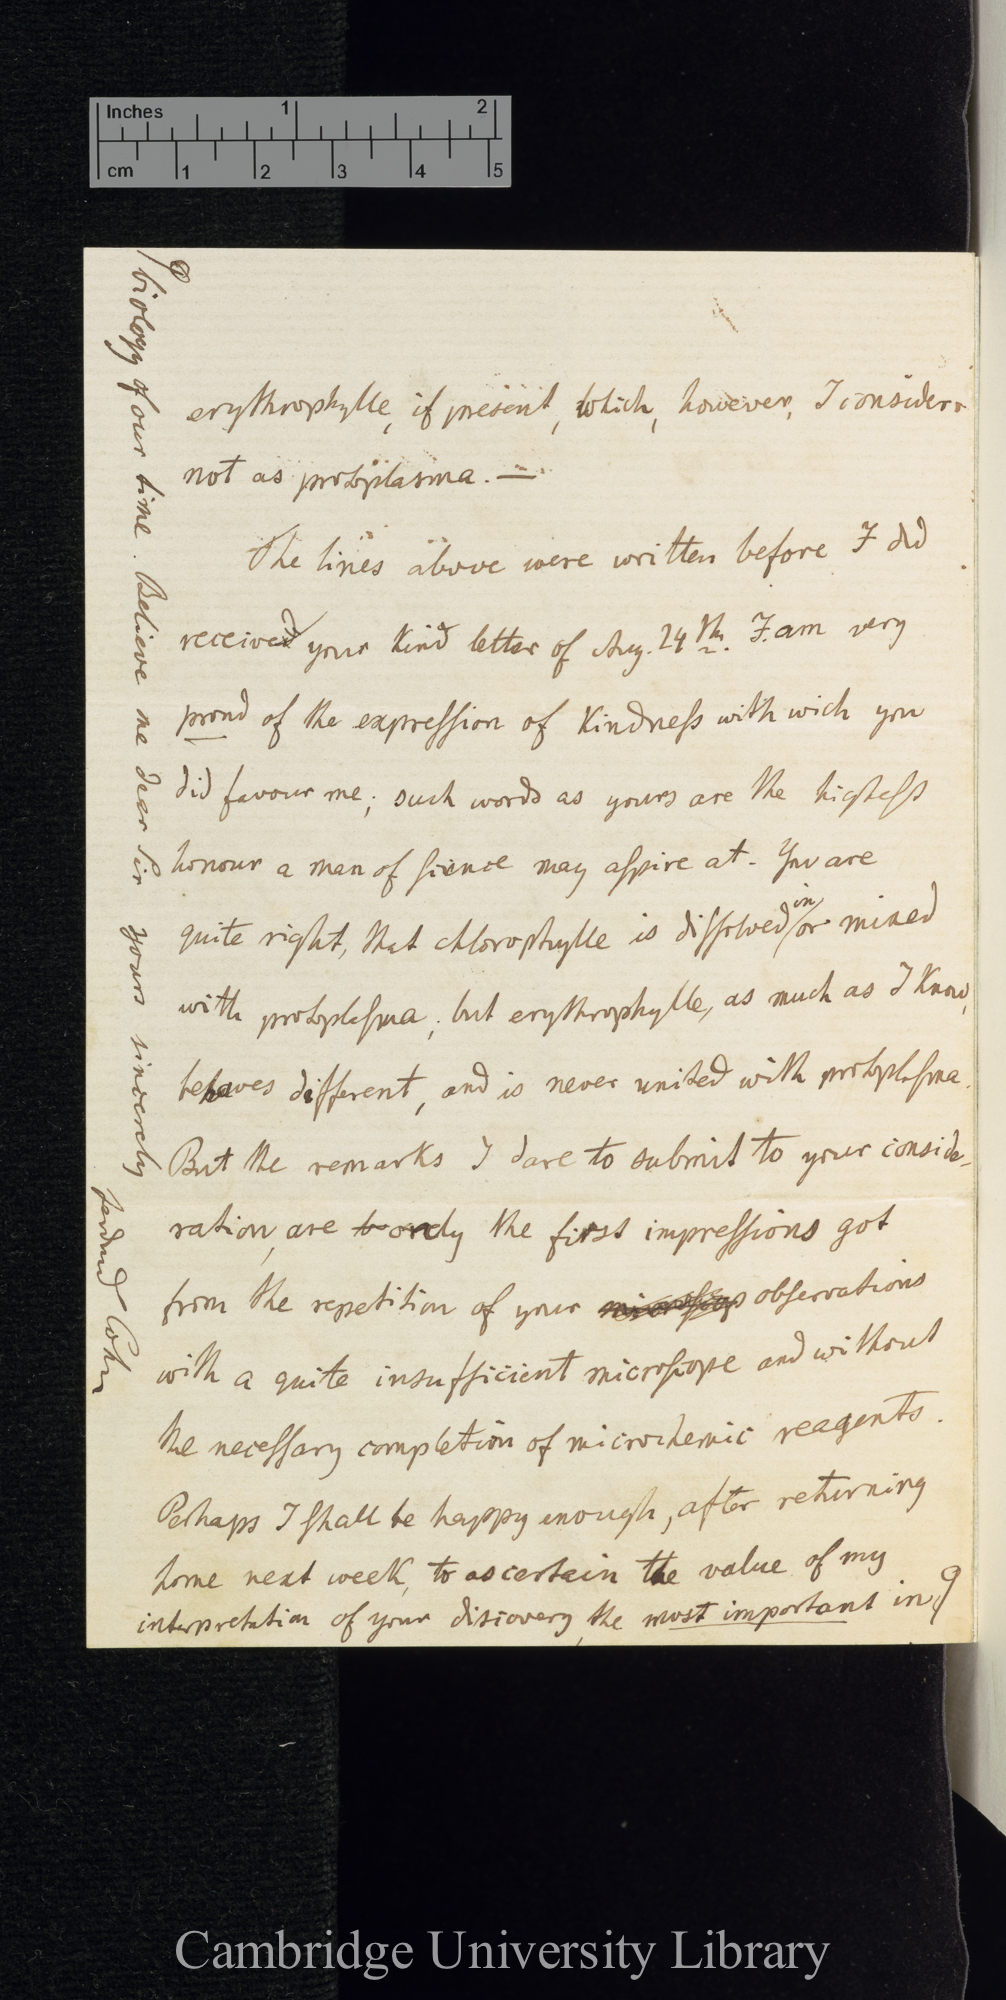 Inches 1 2
cm 1 2 3 4 5
erythrophylle, if present, which, however, I consider
not as protoplasma. —
The lines above were written before I did
received your kind letter of Aug. 24th. I am very
proud of the expression of kindness with wich you
did favour me; such words as yours are the highess
honour a man of sience may aspire at. You are
quite right, that chlorophylle is dissolved in or mixed
with protoplasma; but erythrophylle, as much as I know,
behaves different, and is never united with protoplasma.
But the remarks I dare to submit to your conside-
ration, are only the first impressions got
from the repetition of your observations
with a quite insufficient microscope and without
the necessary completion of microchemic reagents.
Perhaps I shall be happy enough, after returning
home next week, to ascertain the value of my
interpretation of your discovery, the most important in
biology of our time. Believe me dear Sir yours sincerely
Ferdinand Cohn
Cambridge University Library